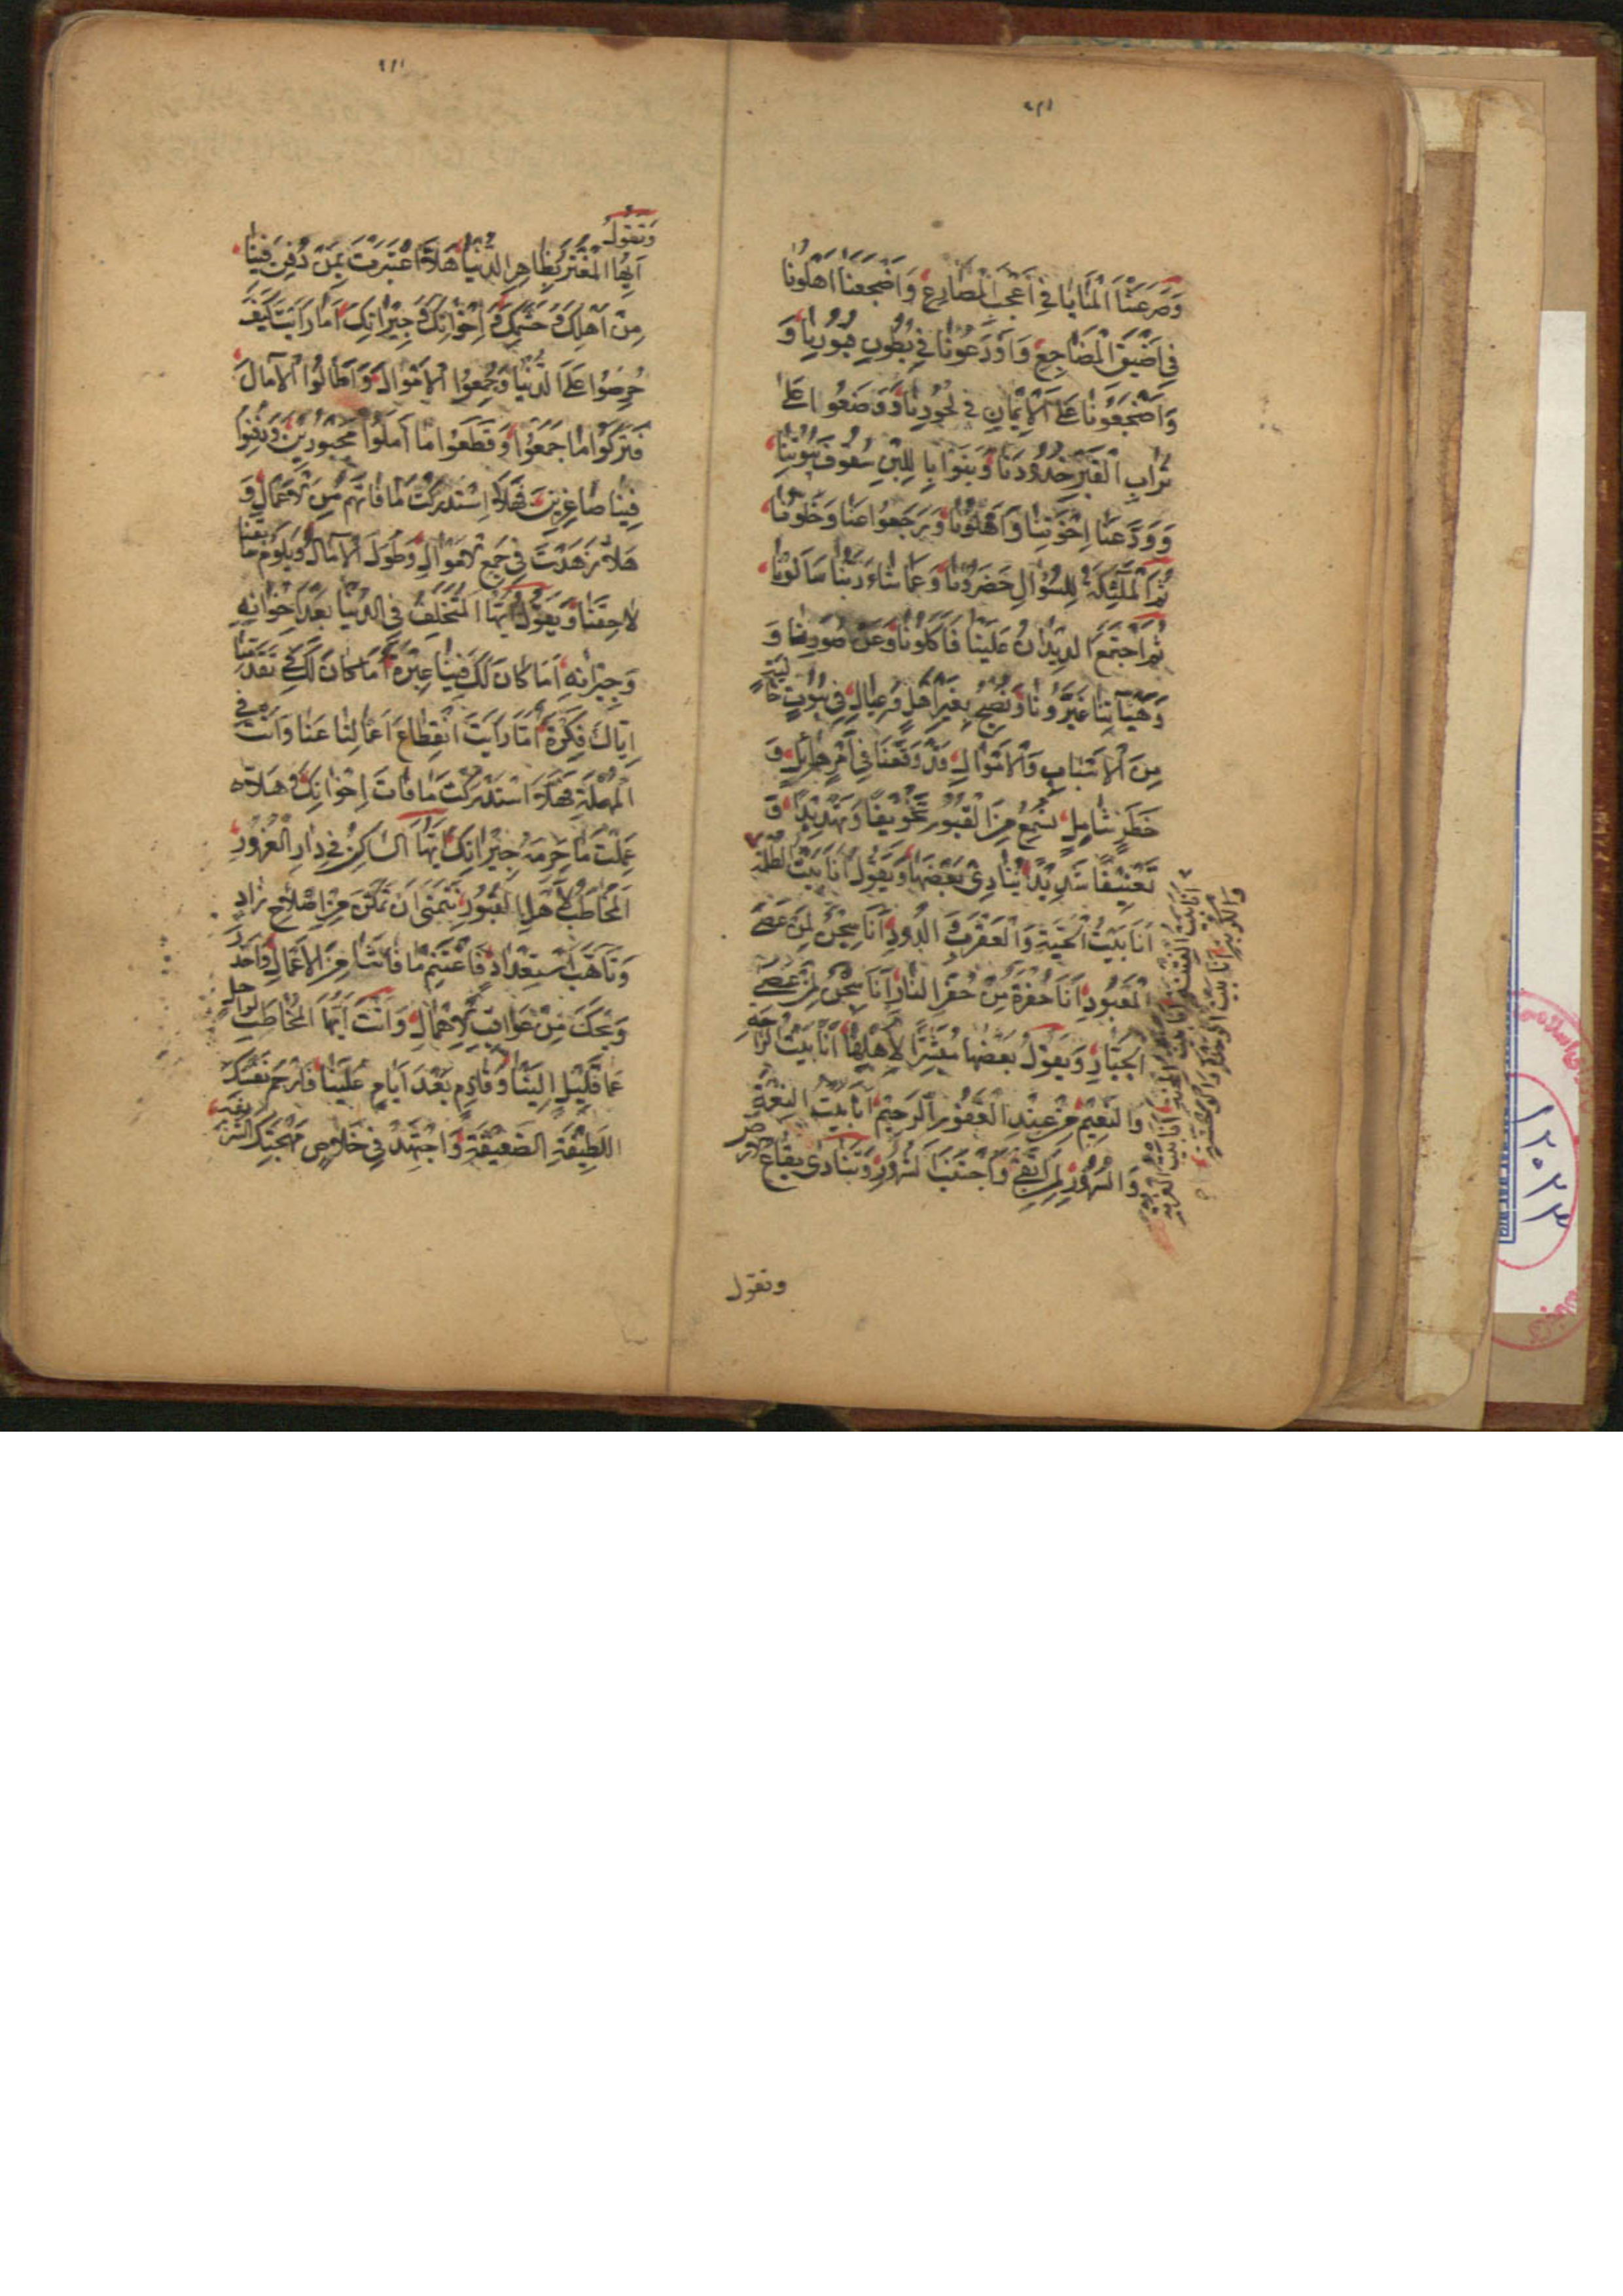 وَصَرَعَتْنَا الْمَنَايَا فِي أَعْجَبِ الْمَصَارِعِ وَاَضْجَعَنَا اَهْلُونَا
فِي اَضْيَقِ الْمَضَاجِعِ وَاَوْدَعُونَا فِي بُطُونِ قُبُورِنَا وَ
وَاَضْجَعُونَا عَلَى الْاَيْمَانِ فِي لُحُودِنَا وَوَضَعُوا عَلَى
تُرَابِ الْقَبْرِ خُدُودَنَا وَبَنَوْا بِاللَّبِنِ سُقُوفَ بُيُوتِنَا
وَوَدَّعَنَا اِخْوَتِنَا وَاَهْلُونَا وَرَجَعُوا عَنَّا وَخَلَّوْنَا
ثُمَّ الْمَلٰئِكَةُ لِلسُّؤَالِ حَضَرُونَا وَعَمَّا شَاءَ رَبُّنَا سَاَلُونَا
ثُمَّ اجْتَمَعَ الدِّيدَانُ عَلَيْنَا فَاَكَلُونَا وَعَنْ صُوَرِنَا وَ
وَهَيْاٰتِنَا غَيَّرُونَا وَنُصْبِحُ بِغَيْرِ اَهْلٍ وَعِيَالٍ فِي بُيُوتٍ خَالِيَةٍ
مِنَ الْاَسْبَابِ وَالْاَمْوَالِ قَدْ وَقَعْنَا فِي اَمْرٍ هَائِلٍ وَ
خَطَرٍ شَامِلٍ نَسْمَعُ مِنَ الْقُبُورِ تَخْوِيفًا وَتَهْدِيدًا وَ
تَعْنِيفًا شَدِيدًا يُنَادِي بَعْضُهَا وَيَقُولُ اَنَا بَيْتُ الظُّلْمَةِ
اَنَا بَيْتُ الْحَيَّةِ وَالْعَقْرَبِ وَالدُّودِ اَنَا سِجْنُ لِمَنْ عَصَى
الْمَعْبُودِ اَنَا حُفْرَةٌ مِنْ حُفَرِ النَّارِ اَنَا سِجْنٌ لِمَنْ عَصَى
الْجَبَّارِ وَيَقُولُ بَعْضُهَا مُبَشِّرًا لِاَهْلِهَا اَنَا بَيْتُ الرَّاحَةِ
وَالنَّعِيمِ مِنْ عِنْدِ الْغَفُورِ الرَّحِيمِ اَنَا بَيْتُ النِّعْمَةِ
وَالسُّرُورِ لِمَنِ اتَّقَى وَاجْتَنَبَ الشُّرُورِ وَتُنَادِي بِقَاعُ الْاَرْضِ
وتقول
وَتَقُولُ
اَيُّهَا الْمُغْتَرُّ بِظَاهِرِ الدُّنْيَا هَلَّا اعْتَبَرْتَ بِمَنْ دُفِنَ فِينَا
مِنْ اَهْلِكَ وَحَشَمِكَ وَاِخْوَانِكَ وَجِيْرَانِكَ اَمَا رَاَيْتَ كَيْفَ
حَرِصُوا عَلَى الدُّنْيَا وَجَمَعُوا الْاَمْوَالَ وَاَطَالُوا الْآمَالَ
فَتَرَكُوا مَا جَمَعُوا وَقَطَعُوا مَا اَمَلُوا مَجْبُورِينَ وَدُفِنُوا
فِينَا صَاغِرِينَ فَهَلَّا اِسْتَدْرَكْتَ لِمَا فَاتَهُمْ مِنَ الْاَعْمَالِ وَ
هَلَّا زَهَدْتَ فِي جَمْعِ الْاَمْوَالِ وَطُولَ الْآمَالِ وَيَلُومُ سَابِقُنَا
لَاحِقَنَا وَيَقُولُ اَيُّهَا الْمُتَخَلِّفُ فِي الدُّنْيَا بَعْدَ اِخْوَانِهِ
وَجِيْرَانِهِ اَمَا كَانَ لَكَ فِينَا عِبْرَةٌ اَمَا كَانَ لَكَ فِي تَقَدُّمِنَا
اِيَّاكَ فِكْرَةٌ اَمَا رَاَيْتَ انْقِطَاعَ اَعْمَالِنَا عَنَّا وَاَنْتَ فِي
الْمُهْلَةِ فَهَلَّا اسْتَدْرَكْتَ مَا فَاتَ اِخْوَانِكَ وَهَلَّا
عَمِلْتَ مَا حُرِمَهُ جِيْرَانِكَ اَيُّهَا السَّاكِنُ فِي دَارِ الْغُرُورِ
الْمُخَاطَبُ لِاَهْلِ الْقُبُورِ نَتَمَنَّى اَنْ نَتَمَكَّنَ مِنْ اِصْلَاحِ زَادٍ
وَتَاَهُّبِ اسْتِعْدَادٍ فَاغْتَنِمْ مَا فَاتَنَا مِنَ الْاَعْمَالِ وَاحْذَرْ
وَيْحَكَ مِنْ عَوَاقِبِ الْاِهْمَالِ وَاَنْتَ اَيُّهَا الْمُخَاطَبُ لَرَاحِلٌ
عَمَّا قَلِيْلٍ اِلَيْنَا وَقَادِمٌ بَعْدَ اَيَّامٍ عَلَيْنَا فَارْحَمْ نَفْسَكَ
اللَّطِيفَةِ الضَّعِيفَةِ وَاجْتَهِدْ فِي خَلَاصِ مُهْجَتِكَ الشَّرِيفَةِ
۱۲۰۲۳